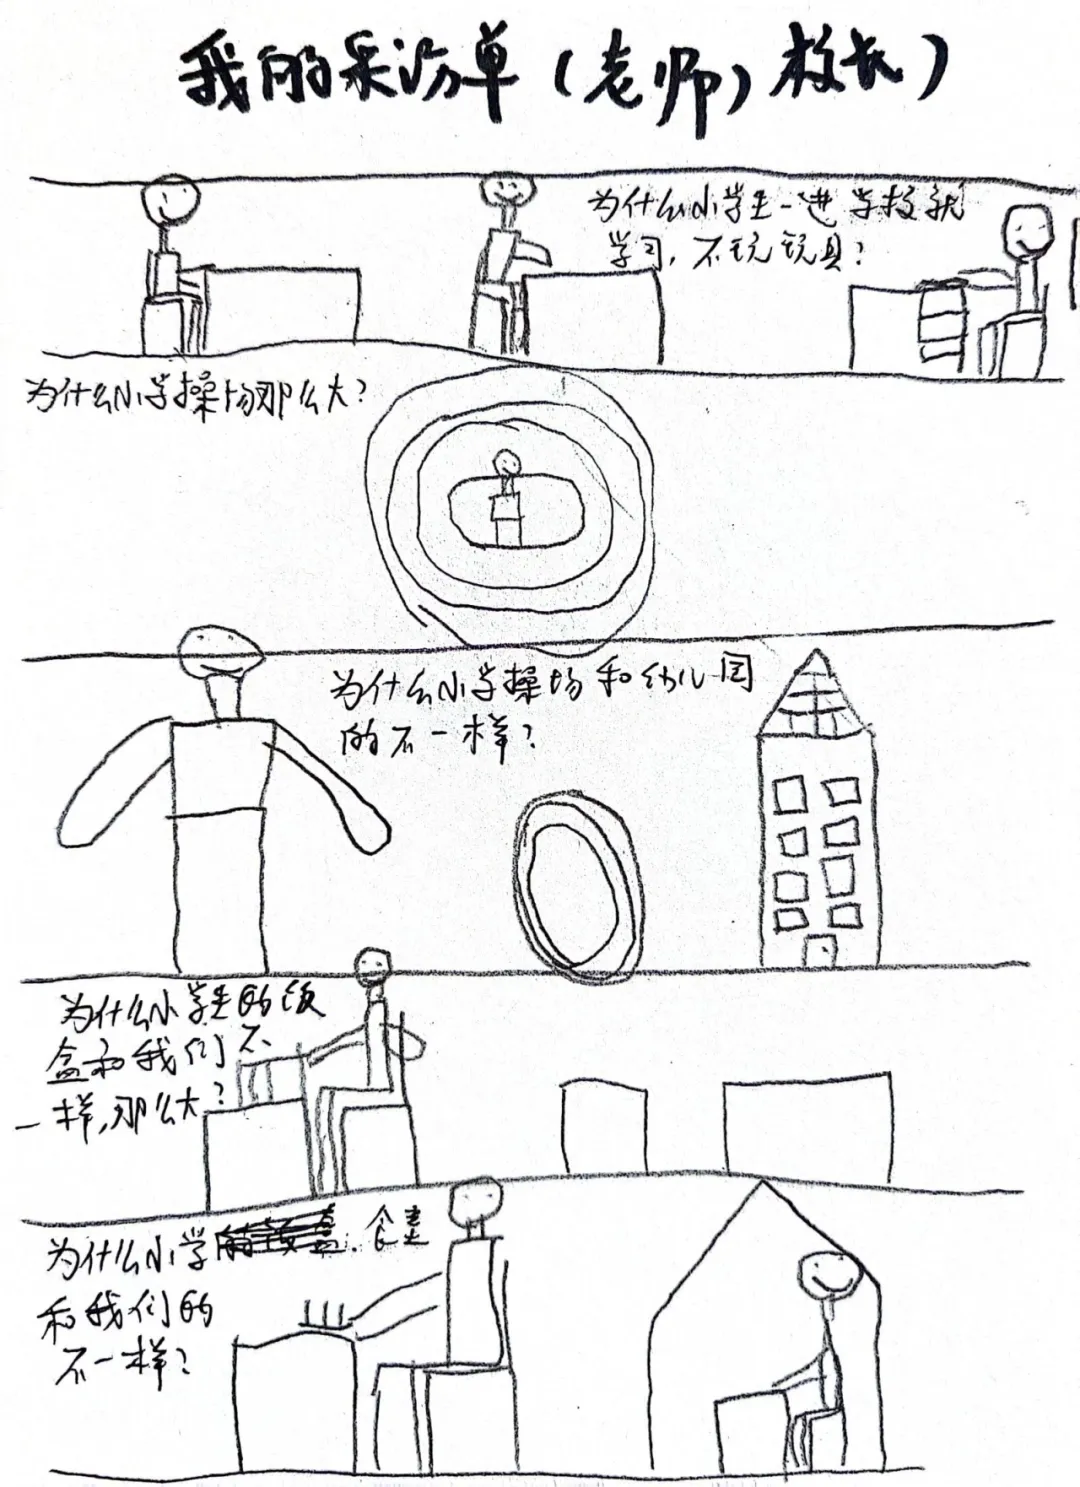 我的采访单（老师，校长）
为什么小学生一进学校就
学习，不玩玩具？
为什么小学操场那么大？
为什么小学操场和幼儿园
的不一样？
为什么小学生的饭
盒和我们不
一样，那么大？
为什么小学的饭盒.食堂
和我们的
不一样？